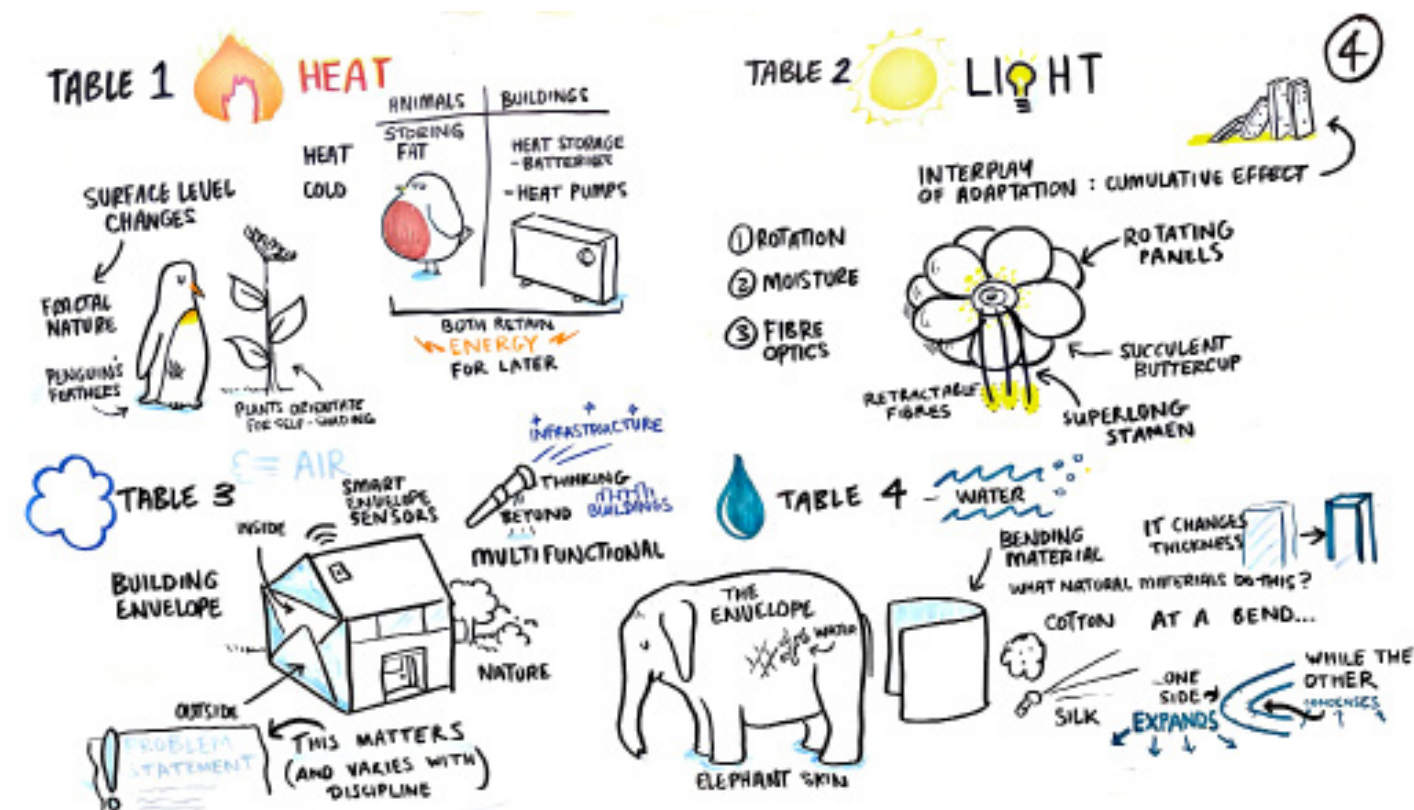 TABLE 1
HEAT
ANIMALS
BUILDINGS
HEAT
COLD
STORING
FAT
HEAT STORAGE
- BATTERIES
- HEAT PUMPS
BOTH RETAIN
ENERGY
FOR LATER
SURFACE LEVEL
CHANGES
FRACTAL
NATURE
PENGUIN'S
FEATHERS
PLANTS ORIENTATE
FOR SELF-SHADING
TABLE 2
LIGHT
4
INTERPLAY
OF ADAPTATION : CUMULATIVE EFFECT
1 ROTATION
2 MOISTURE
3 FIBRE
OPTICS
ROTATING
PANELS
SUCCULENT
BUTTERCUP
RETRACTABLE
FIBRES
SUPERLONG
STAMEN
TABLE 3
AIR
INSIDE
SMART
ENVELOPE
SENSORS
BUILDING
ENVELOPE
OUTSIDE
INFRASTRUCTURE
THINKING
BEYOND
BUILDINGS
MULTIFUNCTIONAL
NATURE
PROBLEM
STATEMENT
THIS MATTERS
(AND VARIES WITH
DISCIPLINE)
TABLE 4 -
WATER
THE
ENVELOPE
WATER
ELEPHANT SKIN
BENDING
MATERIAL
IT CHANGES
THICKNESS
WHAT NATURAL MATERIALS DO THIS?
COTTON
SILK
AT A BEND...
ONE
SIDE
EXPANDS
WHILE THE
OTHER
CONDENSES